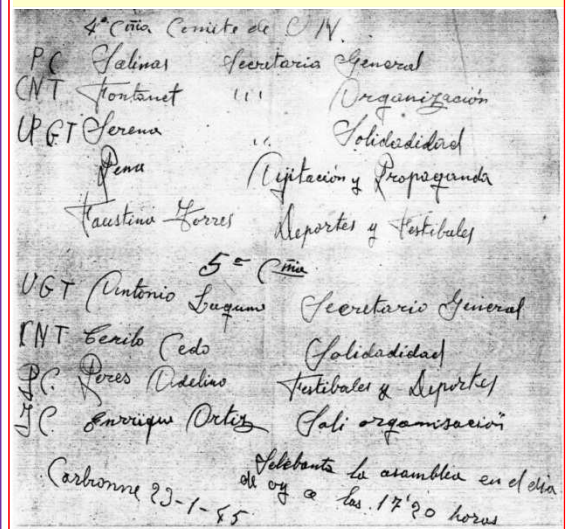 4ª Cñia Comite de U N.
PC Salinas Secretaria General
CNT Fontanet " Organización
UPGT Serena " Solidadidad
Pena Ajitación y Propaganda
Faustino Torres Deportes y Festibales
5ª Cñia
UGT Antonio Secretario General
CNT Benito Cedo Solidadidad
PC. Peres Adelino Festibales y Deportes
Enrrique Ortiz Soli organisación
Selebanta la asamblea en el dia
Carbonne 23-1-45 de oy a las 17'20 horas